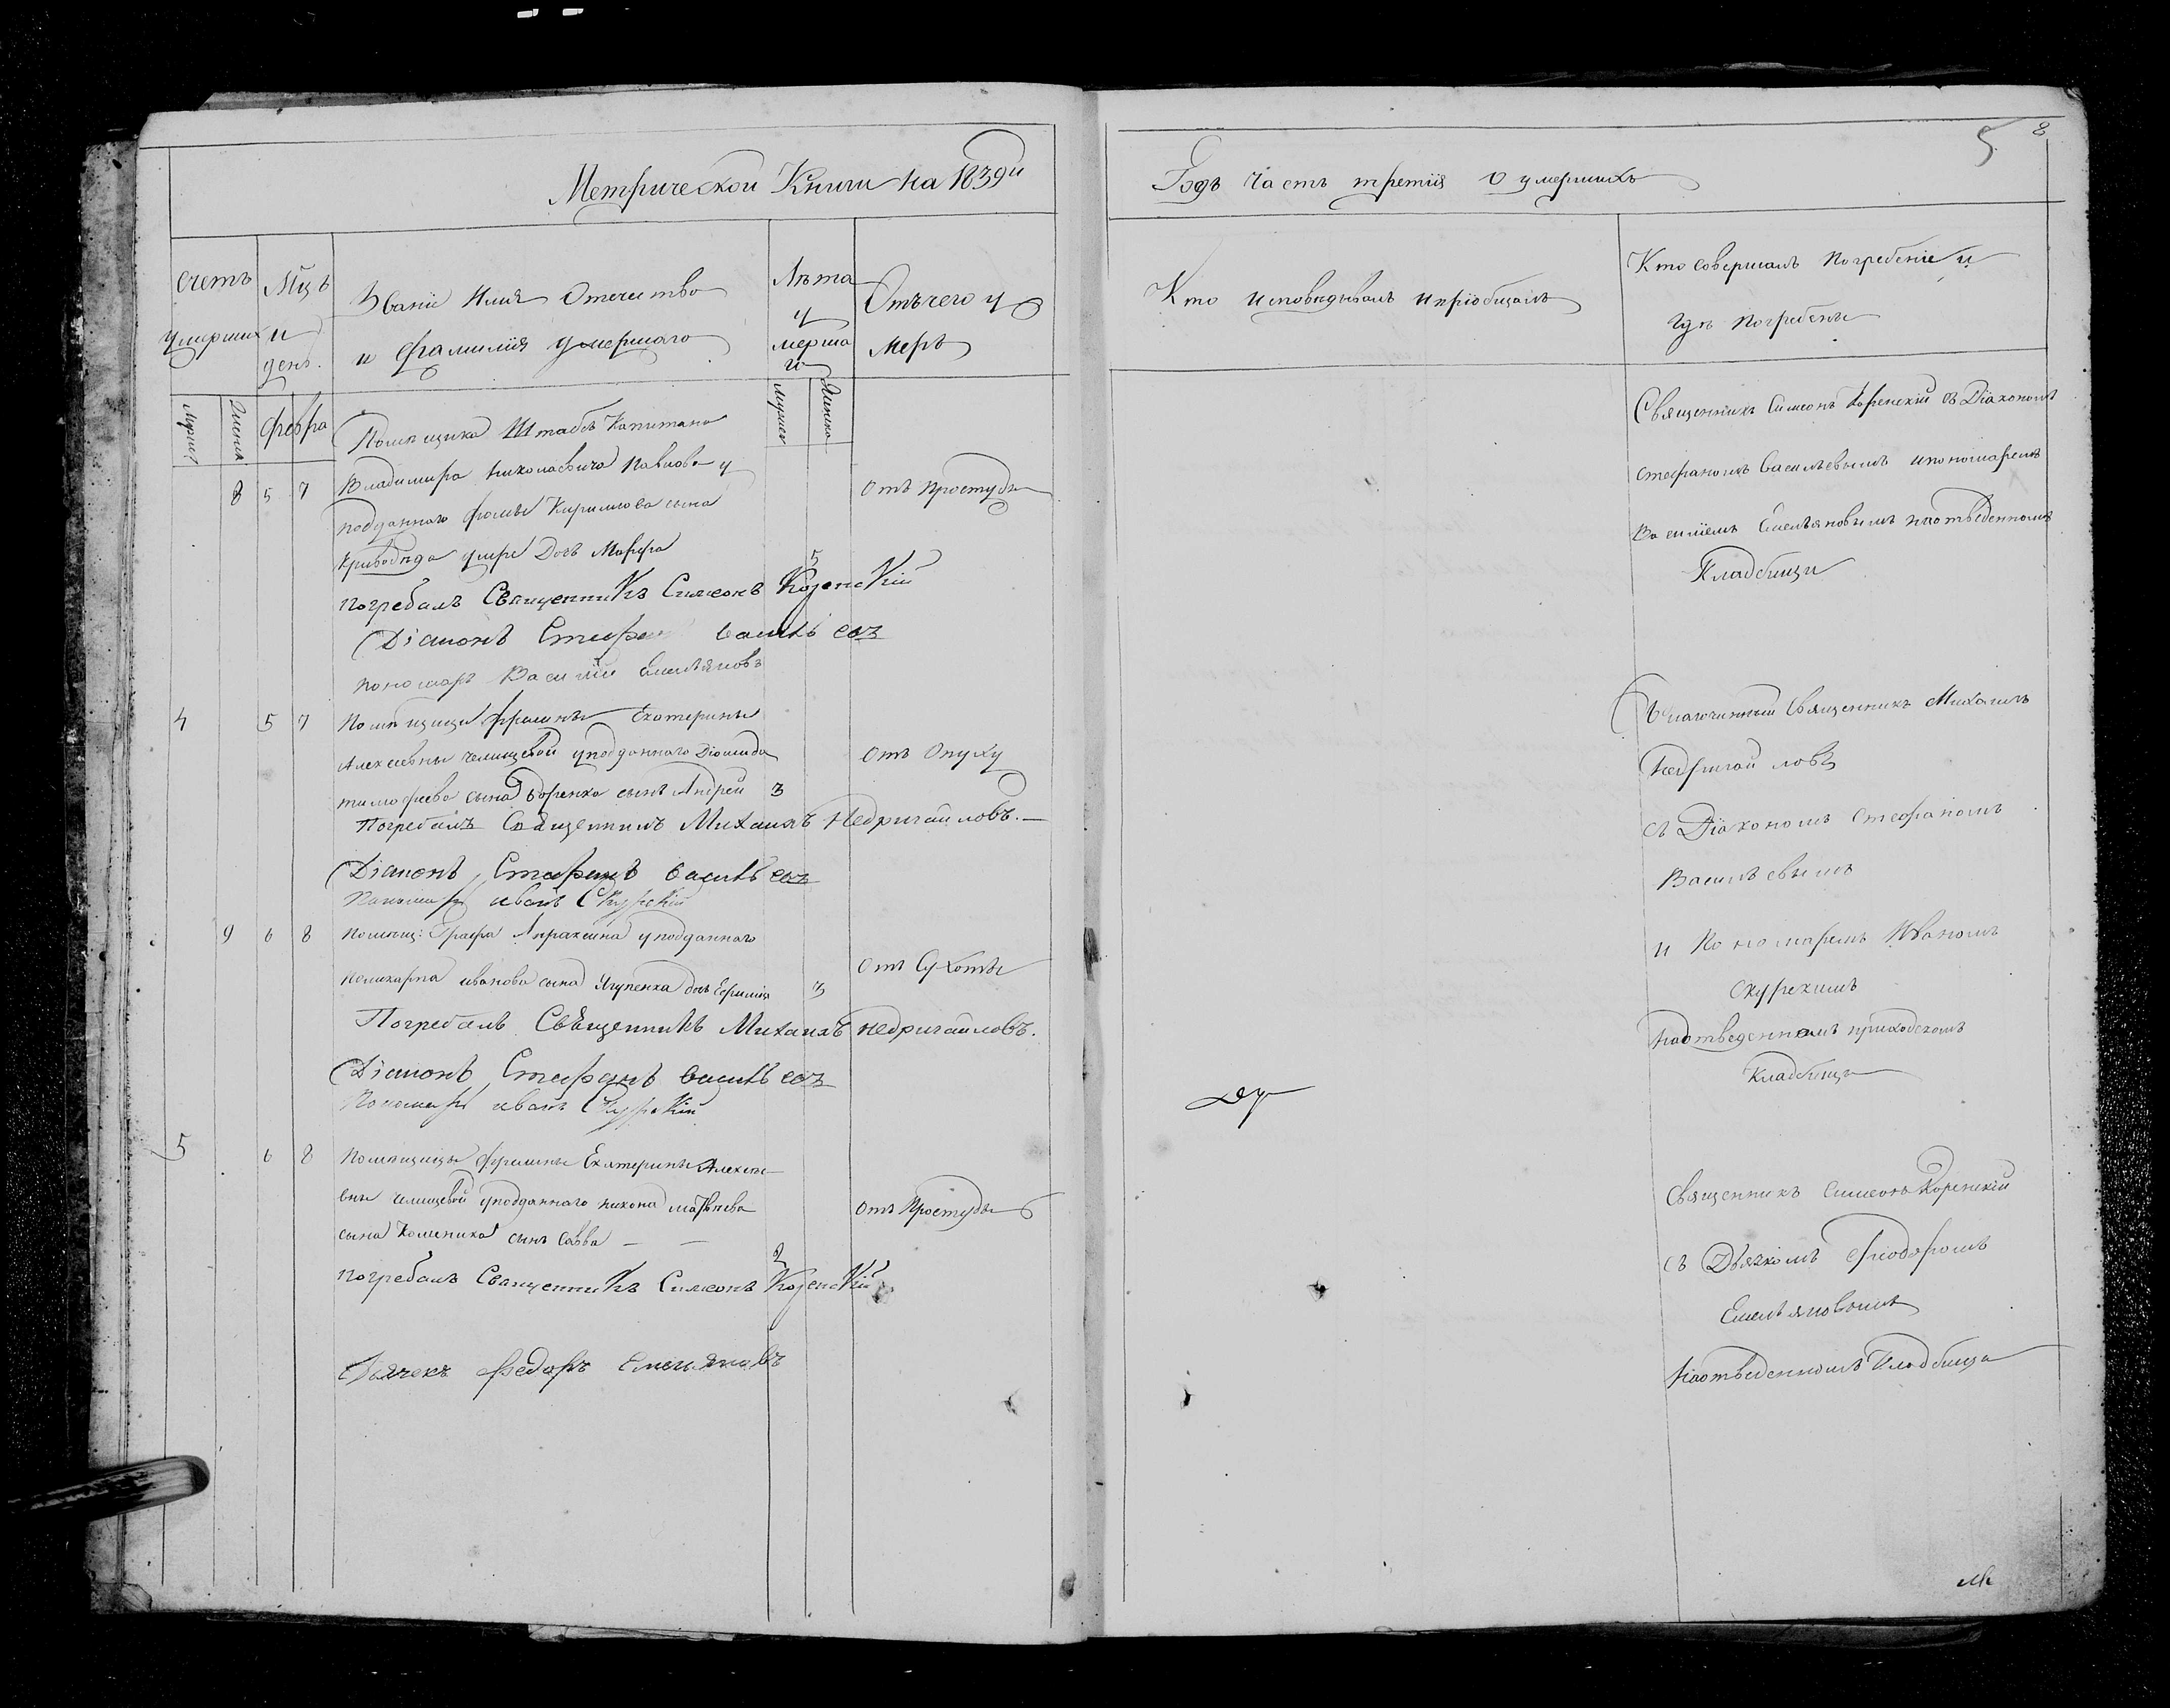 Метрической Книги на 1839й
Годъ Часть третія о умершихъ
5 8
Счетъ умершихъ
Мцъ и день
Званіе Имя Отечество
и фамилія умершаго
Лѣта умершаго
Отъ чего умеръ
Кто исповѣдывалъ и пріобщалъ
Кто совершалъ погребеніе и
гдѣ погребены
Февра
Помѣщика Штабсъ Капитана
8 5 7 Владимира Николаевича Павлова у
подданнаго Фомы Кирилова сына
Кривобѣда умре дочь Марфа 5
отъ простуды
Погребалъ Священникъ Симеонъ Коренскій
Діаконъ Стефанъ Василь евъ
пономарь Василій Емельяновъ
Священникъ Симеонъ Коренскій съ Діакономъ
Стефаномъ Васильевымъ и пономаремъ
Василіемъ Емельяновымъ на отведенномъ
Кладбищи
4 5 7 Помѣщицы Екатерины
Алексеевны Челищевой у подданнаго Діомида
тимофеева сына сынъ Андрей 3
отъ Опуху
Погребалъ Священникъ Михаилъ Недригайловъ.
Діаконъ Стефанъ Василь евъ
Пономарь иванъ Скурскій
Благочинный Священникъ Михаилъ
Недригайловъ
съ Діакономъ Стефаномъ
Васильевымъ
и Пономаремъ Иваномъ
Скурскимъ
На отведенномъ приходскомъ
Кладбищи
9 6 8 помѣщ: Графа Апраксина у подданнаго
поликарпа иванова сына Ягупенка дочь Евфимія 3
отъ Сухоты
Погребалъ Священникъ Михаилъ Недригайловъ.
Діаконъ Стефанъ Василь евъ
Пономарь иванъ Скурскій
5 6 8 Помѣщицы Екатерины Алексѣе
вны Челищевой у подданнаго никона матвѣева
сына сынъ Савва — — 2
отъ Простуды
Погребалъ Священникъ Симеонъ Коренскій
Дьячекъ Федоръ Емельяновъ
Священникъ Симеонъ Коренскій
съ Дьячкомъ Феодоромъ
Емельяновымъ
На отведенномъ Кладбища